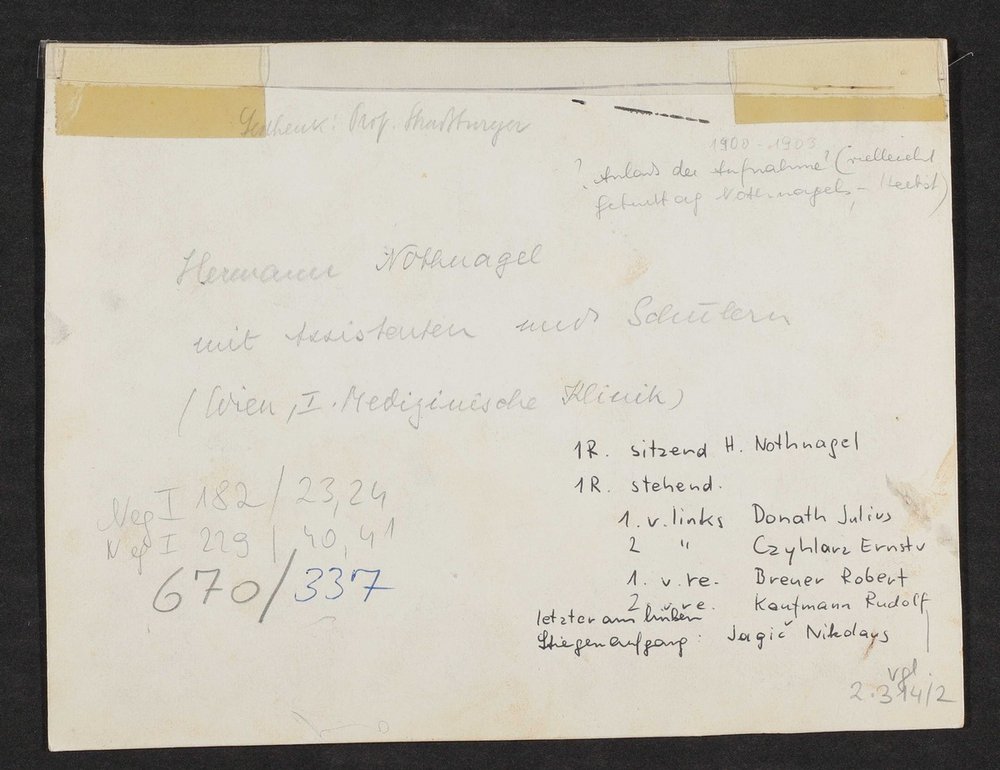 Geschenk: Prof. Straßburger
1900-1903
? Anlass der Aufnahme? (vielleicht
Geburtstag Nothnagels, - Herbst)
Hermann Nothnagel
mit Assistenten und Schülern
(Wien, I. Medizinische Klinik)
1R. sitzend H. Nothnagel
1R. stehend.
1. v. links Donath Julius
2 " Czyhlarz Ernst v
1. v. re. Breuer Robert
2 v. re. Kaufmann Rudolf
letzter am linken
Stiegenaufgang: Jagič Nikolaus
Neg I 182 / 23, 24
Neg I 229 | 40, 41
670/337
vgl.
2.314/2